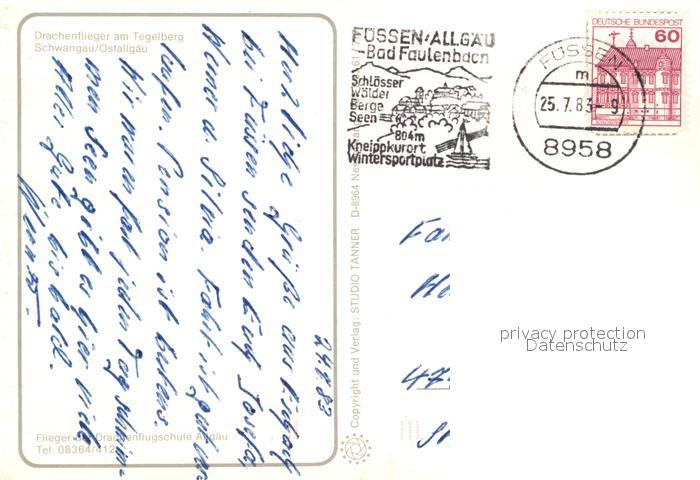 Drachenflieger am Tegelberg
Schwangau/Ostallgäu
24.7.83
Herzliche Grüße aus
bei Füssen senden Euch Josefa,
Werner u. Silvia. Fahrt ist gut ver-
laufen. Pension ist bestens.
Wir waren fast jeden Tag schwim-
men. Seen gibt es hier viele
Alles Gute bis bald.
Flieger der Drachenflugschule Allgäu
Tel. 08364/412
© Copyright und Verlag: STUDIO TANNER D-8964 Nes
FÜSSEN/ALLGÄU
Bad Faulenbach
Schlösser
Wälder
Berge
Seen
804m
Kneippkurort
Wintersportplatz
FÜSSEN
m
25.7.83-9
8958
DEUTSCHE BUNDESPOST
60
Fa
He
47
privacy protection
Datenschutz